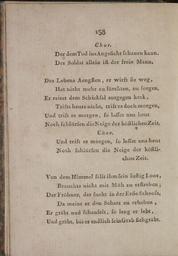 158
Chor.
Der dem Tod ins Angesicht schauen kann,
Der Soldat allein ist der freie Mann.
Des Lebens Aengsten, er wirft sie weg,
Hat nicht mehr zu fürchten, zu sorgen,
Er reitet dem Schicksal entgegen keck,
Trifts heute nicht, trift es doch morgen,
Und trift es morgen, so lasset uns heut
Noch schlürfen die Neige der köstlichen Zeit.
Chor.
Und trift es morgen, so lasset uns heut
Noch schlürfen die Neige der köstli-
chen Zeit.
Von dem Himmel fällt ihm sein lustig Loos,
Brauchts nicht mit Müh zu erstreben,
Der Fröhner, der sucht in der Erde Schooß,
Da meint er den Schatz zu erheben,
Er gräbt und schaufelt, so lang er lebt,
Und gräbt, bis er endlich sein Grab sich gräbt.